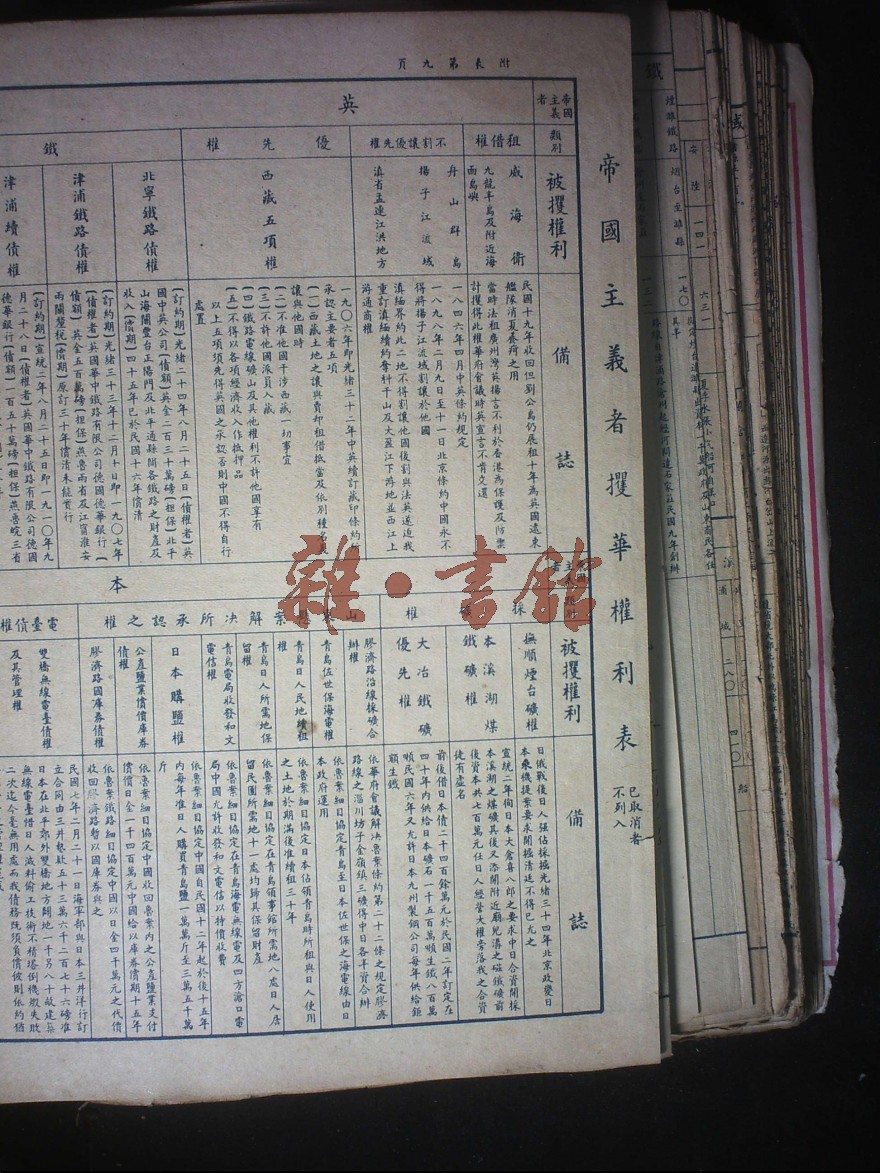 附表第九頁
帝國主義者攫華權利表
已取消者
不列入
帝國主義者
英
類別
租借權
不割讓優先權
優先權
鐵
被攫權利
威海衛
九龍半島及附近海
面島嶼
舟山群島
揚子江流域
滇省孟連江洪地方
西藏五項權
北寧鐵路債權
津浦鐵路債權
津浦續債權
備誌
民國十九年收回但劉公島仍展租十年為英國遠東
艦隊消夏養疴之用
當時法租廣州灣英揚言不利於香港為保護及防禦
計攫得此權華府會議時英宣言不肯交還
一八四六年四月中英條約規定
一八九八年二月九日至十一日北京條約中國永不
得將揚子江流域割讓於他國
滇緬界約此二地不得割讓他國後割與法英遂迫我
重訂滇緬續約奪科干山及大盈江下游地並西江上
游通商權
一九〇六年即光緒三十二年中英續訂藏印條約
承認主要者五項
(一)西藏土地之讓與賣却租借抵當及依別種名義
讓與他國時
(二)不准他國干涉西藏一切事宜
(三)不許他國派員入藏
(四)鐵路電線礦山及其他權利不許他國享有
(五)不得以各項經濟收入作抵押品
以上五項須先得英國之承認否則中國不得自行
處置
(訂約期)光緒二十四年八月二十五日(債權者)英
國中英公司(債額)英金二百三十萬磅(担保)北平
山海關豐台正陽門及北平通縣間各鐵路之財產及
收入(債期)四十五年已於民國十六年償清
(訂約期)光緒三十三年十二月十日即一九〇七年
(債權者)英國華中鐵路有限公司德國德華銀行(
債額)英金五百萬磅(担保)直魯兩省及江寗淮安
兩關釐稅(債期)原訂三十年償清未能實行
(訂約期)宣統二年八月二十五日即一九一〇年九
月二十八日(債權者)英國華中鐵路有限公司德國
德華銀行(債額)一百五十萬磅(担保)直魯皖三省
本
採礦權
山東懸案解決所承認之權
電臺債權
被攫權利
撫順煙台礦權
本溪湖煤
鐵礦權
大冶鐵礦
優先權
膠濟路沿線採礦合
辦權
青島佐世保海電權
青島日人民地續租
權
青島日人所需地保
留權
青島電局收發和文
電信權
日本購鹽權
公產鹽業償價庫券
債權
膠濟路國庫券債權
雙橋無線電臺債權
及其管理權
備誌
日俄戰後日人強佔採掘光緒三十四年北京政變日
本乘機提案要求開掘清廷不得已允之
宣統二年徇日本大倉喜八郎之要求中日合資開採
本溪湖之煤礦其後又添開附近廟兒溝之磁鐵礦前
後資本共七百萬元任日人經營大權旁落我之合資
徒有虛名
前後借日本債二千四百餘萬元於民國二年訂定在
四十年內供給日本礦石一千五百萬噸生鐵八百萬
噸民國六年又允許日本九州製鋼公司每年供給鉅
額生鐵
依華府會議解決魯案條約第二十二條之規定膠濟
路線之淄川坊子金嶺鎮三礦得中日各半資合辦
依魯案細目協定青島至日本佐世保之海電線由日
本政府運用
依魯案細目協定日本佔領青島時所租與日人使用
之土地於期滿後准續租三十年
依魯案細目協定在青島領事館所需地八處日人居
留民團所需地十一處均歸其保留財產
依魯案細目協定在青島海電無線電及四方滄口電
局中國允許收發和文電信以特價收費
依魯案細目協定中國自民國十二年起於後十五年
內每年准日人購買青島鹽一萬萬斤至三萬五千萬
斤
依魯案細目協定中國收回魯案內之公產鹽業支付
償價日金一千四百萬元中國給以庫券債期十五年
依魯案鐵路細目協定中國以日金四千萬元之代價
收回膠濟路暫以國庫券與之
民國七年二月二十一日海軍部與日本三井洋行訂
立合同由三井墊款五十三萬六千二百七十六磅准
日本在北平郊外雙橋地方闢地一千另八十畝建築
無線電臺惜日人減料偷工技術不精塔倒機燬失敗
二次迄今毫無用處而我債務既須負償彼則依約猶
雜·書館